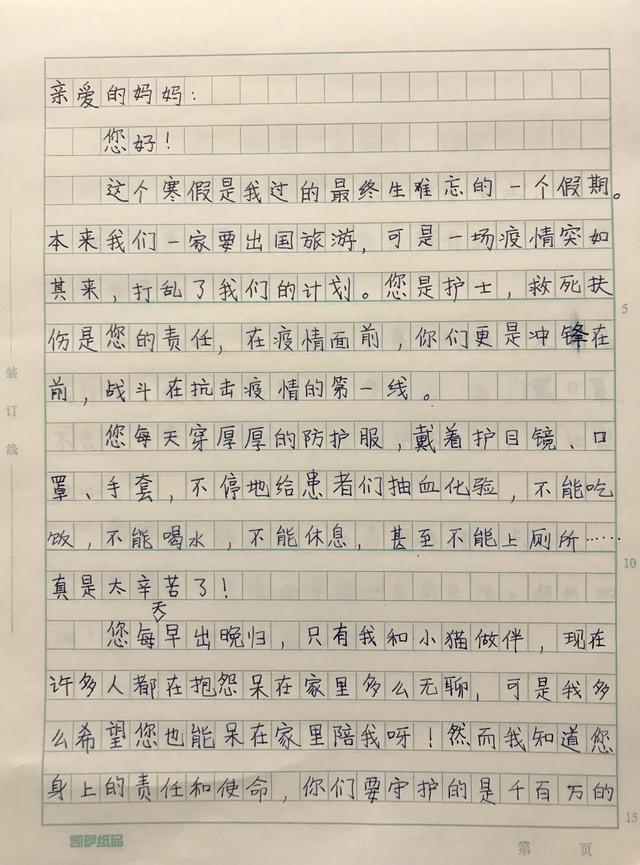 亲爱的妈妈：
您好！
这个寒假是我过的最终生难忘的一个假期。
本来我们一家要出国旅游，可是一场疫情突如
其来，打乱了我们的计划。您是护士，救死扶
5
伤是您的责任，在疫情面前，你们更是冲锋在
前，战斗在抗击疫情的第一线。
您每天穿厚厚的防护服，戴着护目镜、口
罩、手套，不停地给患者们抽血化验，不能吃
饭，不能喝水，不能休息，甚至不能上厕所……
10
真是太辛苦了！
您每天早出晚归，只有我和小猫做伴，现在
许多人都在抱怨呆在家里多么无聊，可是我多
么希望您也能呆在家里陪我呀！然而我知道您
身上的责任和使命，你们要守护的是千百万的
15
装订线
凯萨纸品
第 页